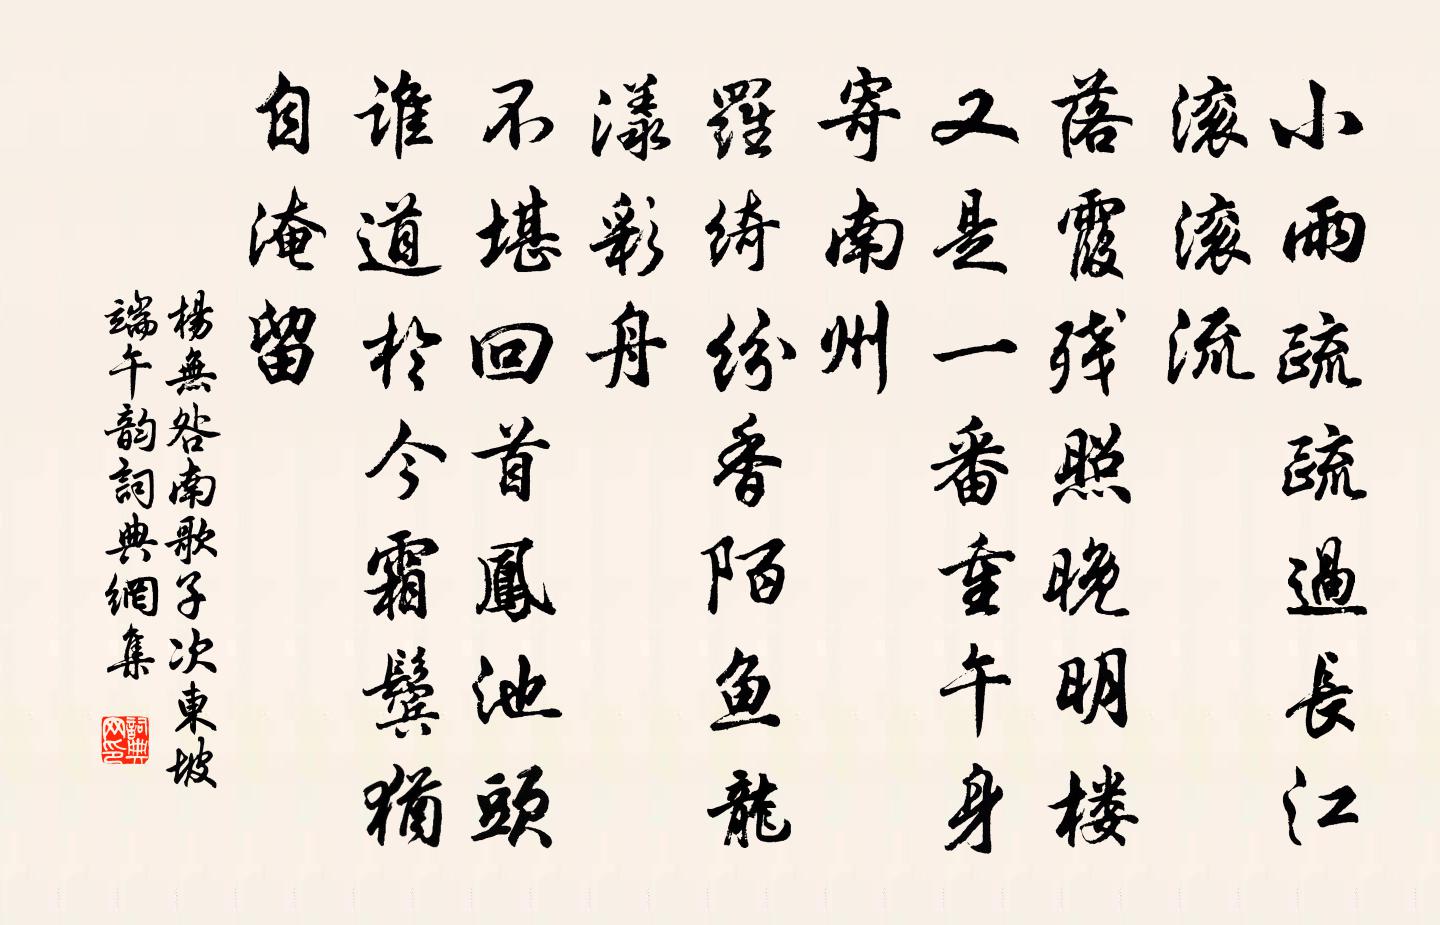 小雨疏疏過長江
滚滚流
落霞残照晚明楼
又是一番重午身
寄南州
羅綺紛香陌鱼龍
漾彩舟
不堪回首鳳池頭
谁道於今霜鬓猶
自淹留
楊無咎南歌子次東坡
端午韵詞典網集
詞典
网印